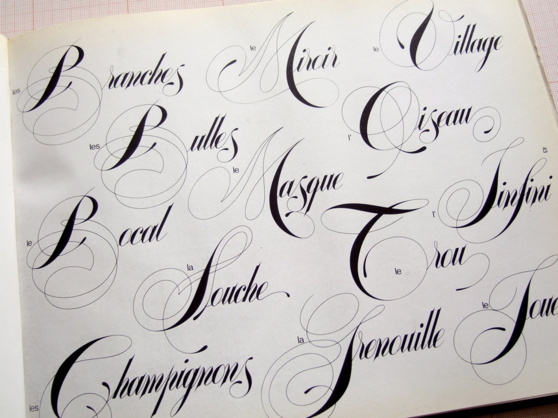 les Branches
le Miroir
le Village
les Bulles
le Masque
l' Oiseau
le Bocal
la Souche
le Trou
l' Infini
les Champignons
la Grenouille
le